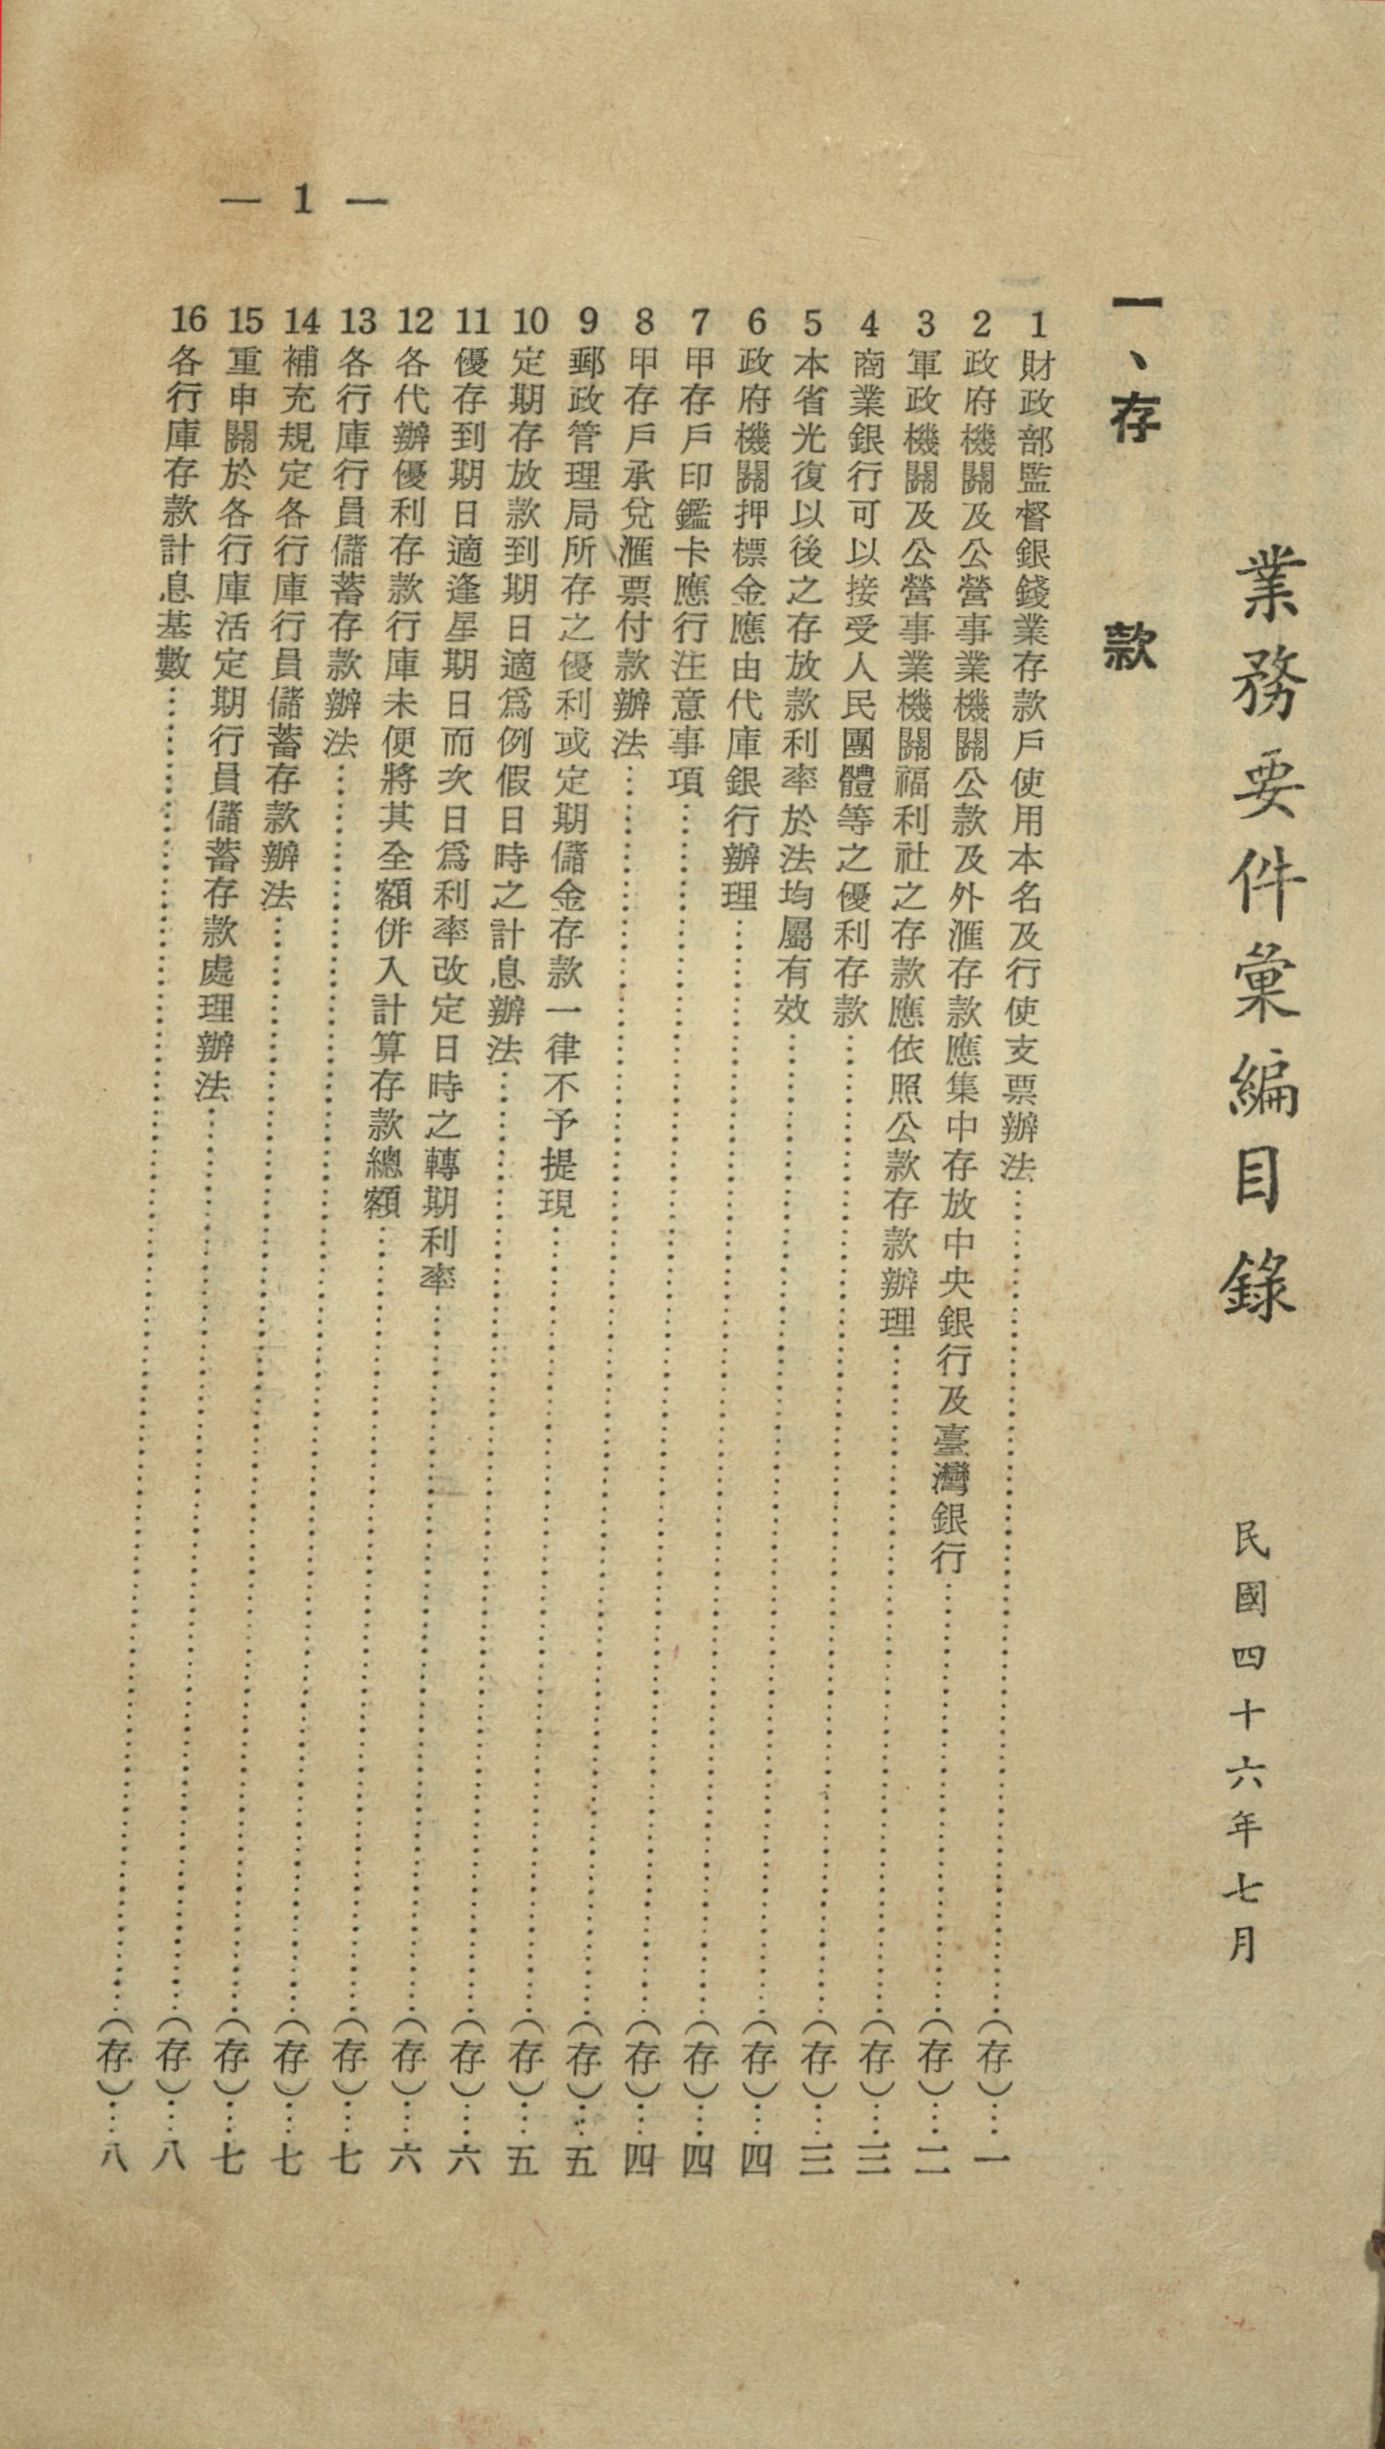 業務要件彙編目錄 民國四十六年七月
一、存款
1 財政部監督銀錢業存款戶使用本名及行使支票辦法……(存)……一
2 政府機關及公營事業機關公款及外滙存款應集中存放中央銀行及臺灣銀行……(存)……二
3 軍政機關及公營事業機關福利社之存款應依照公款存款辦理……(存)……三
4 商業銀行可以接受人民團體等之優利存款……(存)……三
5 本省光復以後之存放款利率於法均屬有效……(存)……四
6 政府機關押標金應由代庫銀行辦理……(存)……四
7 甲存戶印鑑卡應行注意事項……(存)……四
8 甲存戶承兌滙票付款辦法……(存)……五
9 郵政管理局所存之優利或定期儲金存款一律不予提現……(存)……五
10 定期存放款到期日適爲例假日時之計息辦法……(存)……六
11 優存到期日適逢星期日而次日爲利率改定日時之轉期利率……(存)……六
12 各代辦優利存款行庫未便將其全額併入計算存款總額……(存)……七
13 各行庫行員儲蓄存款辦法……(存)……七
14 補充規定各行庫行員儲蓄存款辦法……(存)……七
15 重申關於各行庫活定期行員儲蓄存款處理辦法……(存)……八
16 各行庫存款計息基數……(存)……八
— 1 —